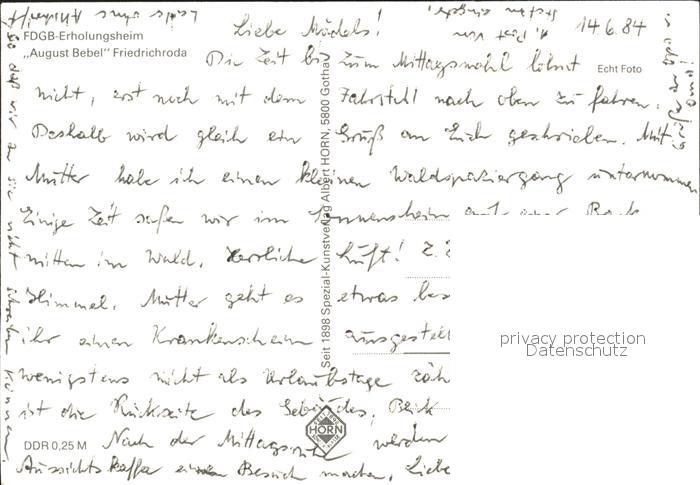 FDGB-Erholungsheim
„August Bebel" Friedrichroda
Liebe Mädels!
14.6.84
Die Zeit bis zum Mittagsmahl lohnt
Echt Foto
nicht, erst noch mit dem Fahrstuhl nach oben zu fahren.
Deshalb wird gleich ein Gruß an Euch geschrieben. Mit
Mutter habe ich einen kleinen Waldspaziergang unternommen
Einige Zeit saßen wir im Sonnenschein auf einer Bank
mitten im Wald. Herrliche Luft! Z. Z.
Himmel. Mutter geht es etwas bes
ihr einen Krankenschein ausgestell
wenigstens nicht als Urlaubstage zäh
ist die Rückseite des Gebäudes, Blick
Nach der Mittagsruhe werden
Aussichtskaffee einen Besuch machen. Liebe
DDR 0,25 M
Seit 1898 Spezial-Kunstverlag Albert HORN, 5800 Gotha
HORN
privacy protection
Datenschutz